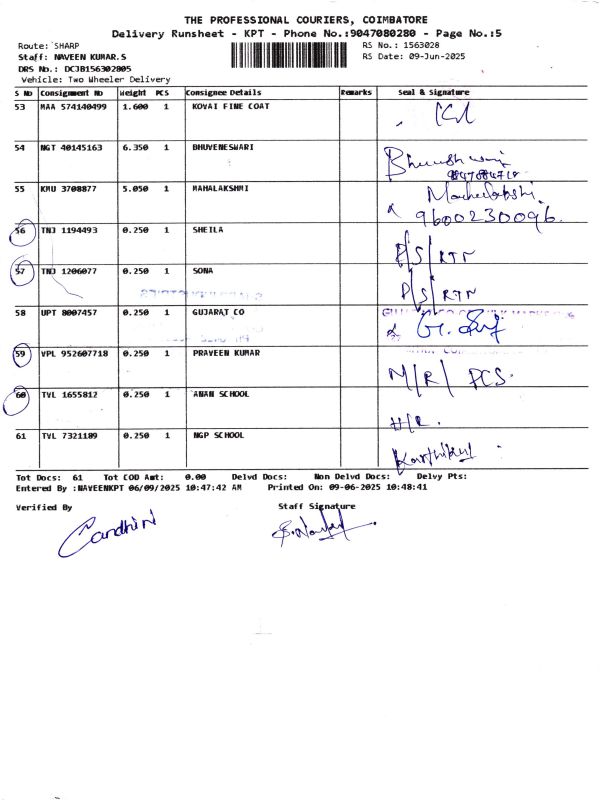 THE PROFESSIONAL COURIERS, COIMBATORE
Delivery Runsheet - KPT - Phone No.:9047080280 - Page No.:5
Route: SHARP
RS No.: 1563028
Staff: NAVEEN KUMAR.S
RS Date: 09-Jun-2025
DRS No.: DCJB156302805
Vehicle: Two Wheeler Delivery
S No Consignment No Weight PCS Consignee Details Remarks Seal & Signature
53 MAA 574140499 1.600 1 KOVAI FINE COAT
54 NGT 40145163 6.350 1 BHUVENESWARI
55 KMU 3708877 5.050 1 MAHALAKSHMI
9600230096.
56 TNJ 1194493 0.250 1 SHEILA D/S/RTN
57 TNJ 1206077 0.250 1 SONA D/S/RTN
58 UPT 8007457 0.250 1 GUJARAT CO
59 VPL 952607718 0.250 1 PRAVEEN KUMAR M/R/ PCS.
60 TVL 1655812 0.250 1 ANAN SCHOOL H/R.
61 TVL 7321189 0.250 1 NGP SCHOOL
Tot Docs: 61 Tot COD Amt: 0.00 Delvd Docs: Non Delvd Docs: Delvy Pts:
Entered By :NAVEENKPT 06/09/2025 10:47:42 AM Printed On: 09-06-2025 10:48:41
Verified By Staff Signature
Gandhini